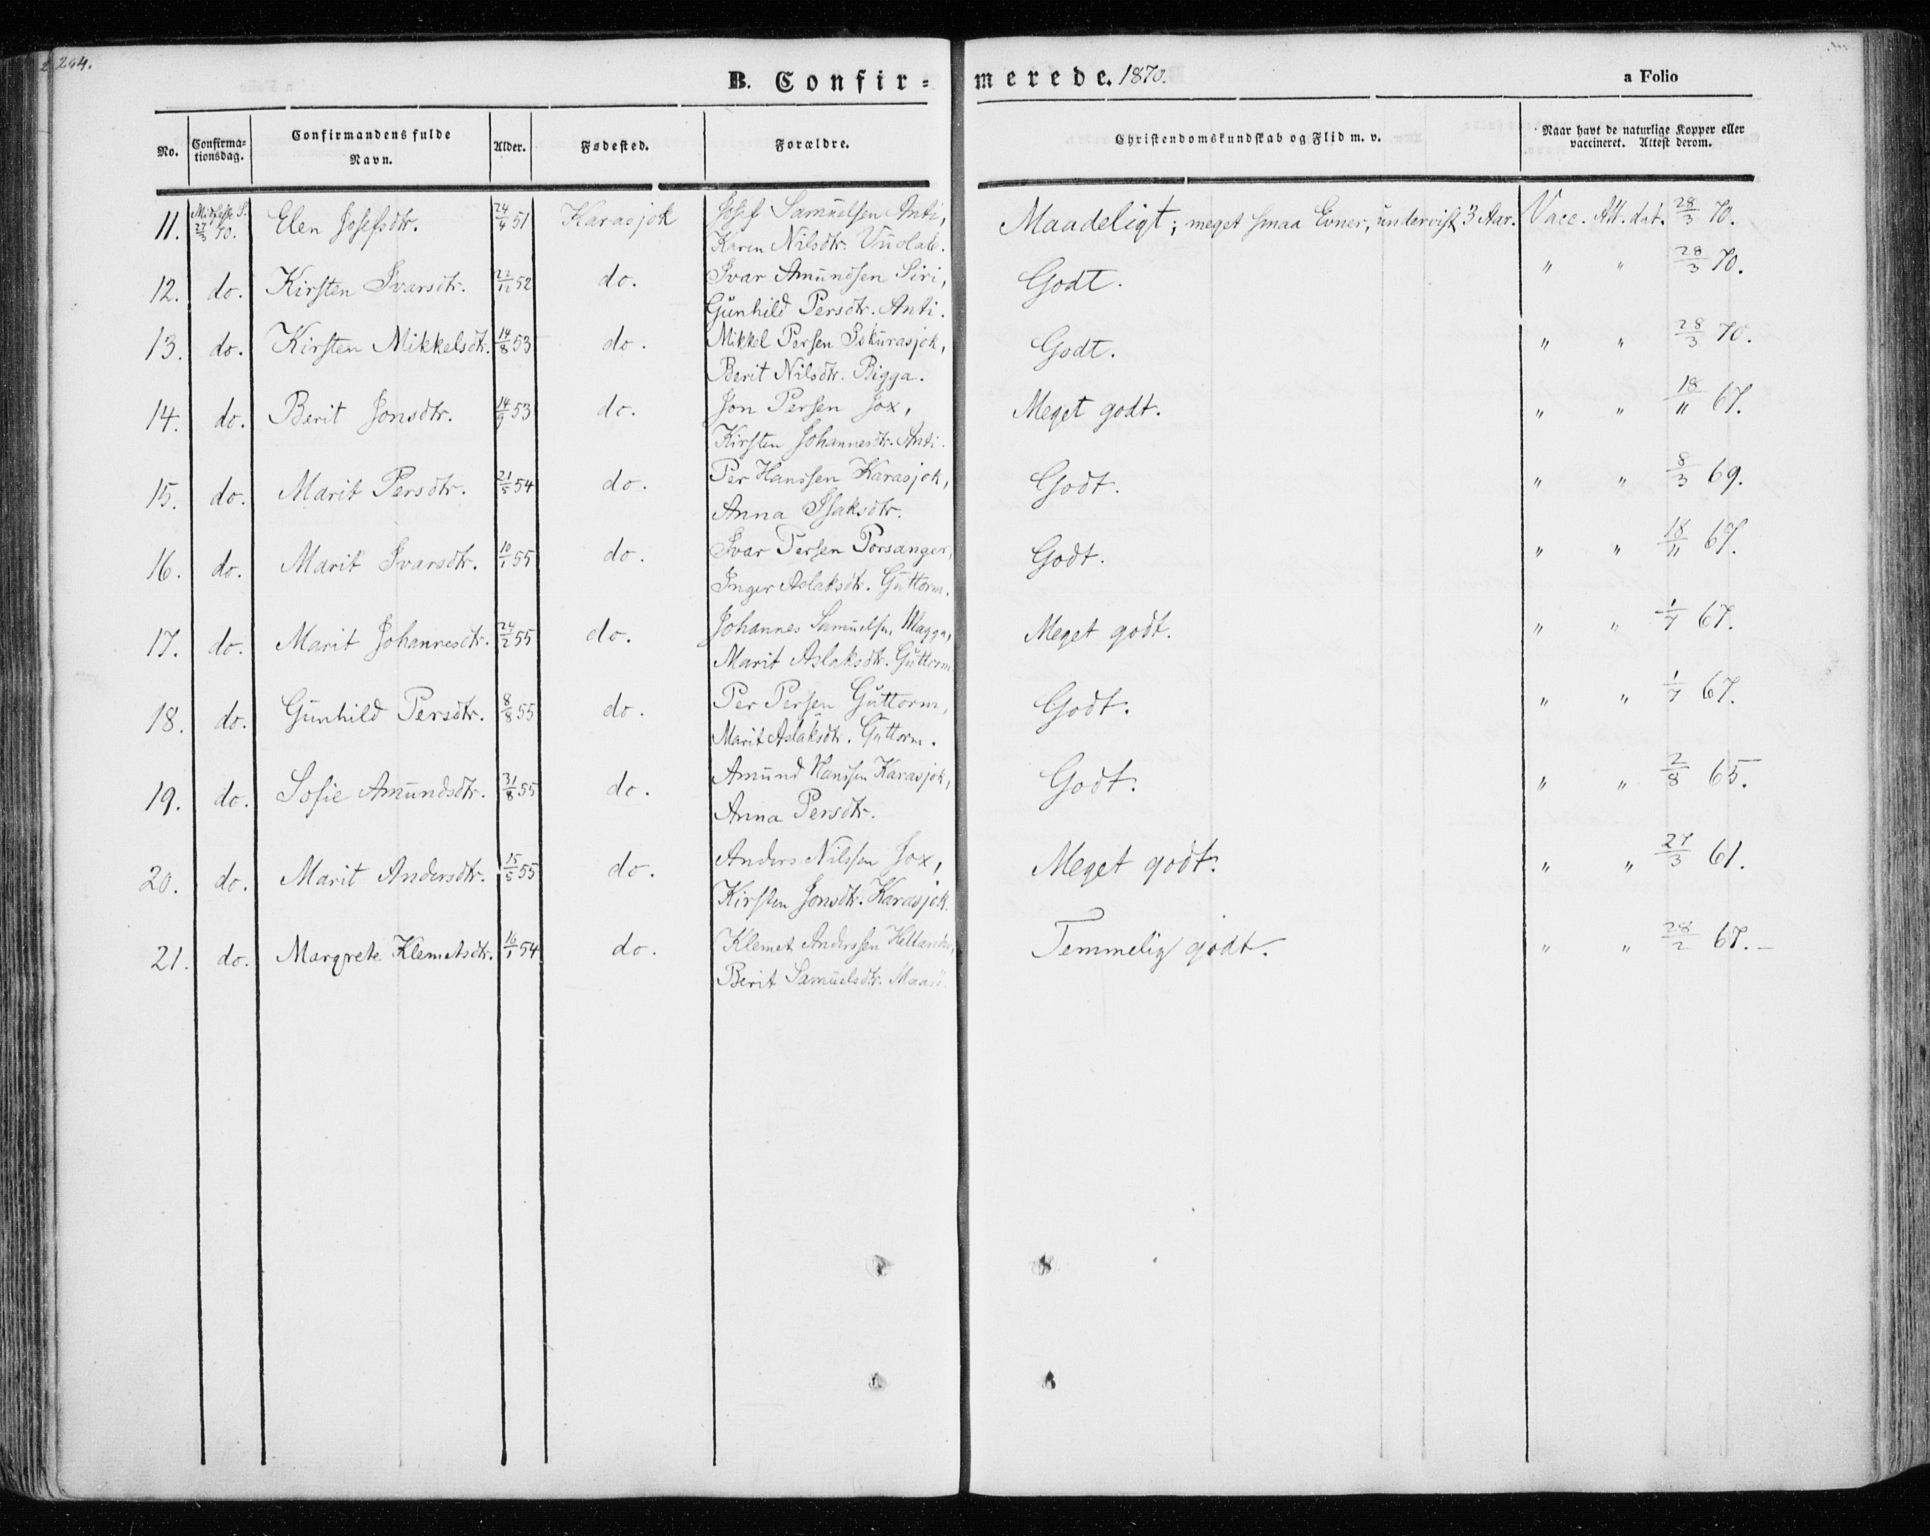 264.
B. Confir- merede. 1870. a Folio
No. Confirma-tionsdag. Confirmandens fulde Navn. Alder. Fødested. Forældre. Christendomskundskab og Flid m. v. Naar havt de naturlige Kopper eller vaccineret. Attest derom.
11. Midfaste S. 27/3 70. Elen Josefsdtr. 51 Karasjok Josef Samuelsen Anti, Maadeligt; meget smaa Evner, undervist 3 Aar. Vacc. Att. dat. 28/3 70.
Karen Nilsdtr. Vuolab.
12. do. Kirsten Ivarsdtr. 22/11 52 do. Ivar Amundsen Siri, Godt. " " 28/3 70.
Gunhild Persdtr. Anti.
13. do. Kirsten Mikkelsdtr. 14/8 53 do. Mikkel Persen Iskurasjok, Godt. " " 28/3 70.
Berit Nilsdtr. Bigga.
14. do. Berit Jonsdtr. 14/9 53 do. Jon Persen Jox, Meget godt. " " 18/11 67.
Kirsten Johannesdtr. Anti.
15. do. Marit Persdtr. 21/5 54 do. Per Hanssen Karasjok, Godt. " " 8/3 69.
Anna Isaksdtr.
16. do. Marit Ivarsdtr. 10/1 55 do. Ivar Persen Porsanger, Godt. " " 18/11 67.
Inger Aslaksdtr. Guttorm.
17. do. Marit Johannesdtr. 24/2 55 do. Johannes Samuelsen Magga, Meget godt. " " 1/7 67.
Marit Aslaksdtr. Guttorm
18. do. Gunhild Persdtr. 8/8 55 do. Per Persen Guttorm, Godt. " " 1/7 67.
Marit Aslaksdtr. Guttorm.
19. do. Sofie Amundsdtr. 31/8 55 do. Amund Hanssen Karasjok, Godt. " " 2/8 65.
Anna Persdtr.
20. do. Marit Andersdtr. 15/5 55 do. Anders Nilssen Jox, Meget godt. " " 27/3 61.
Kirsten Jonsdtr. Karasjok.
21. do. Margrete Klemetsdtr. 16/1 54 do. Klemet Anderssen Temmelig godt. " " 28/2 67.
Berit Samuelsdtr.